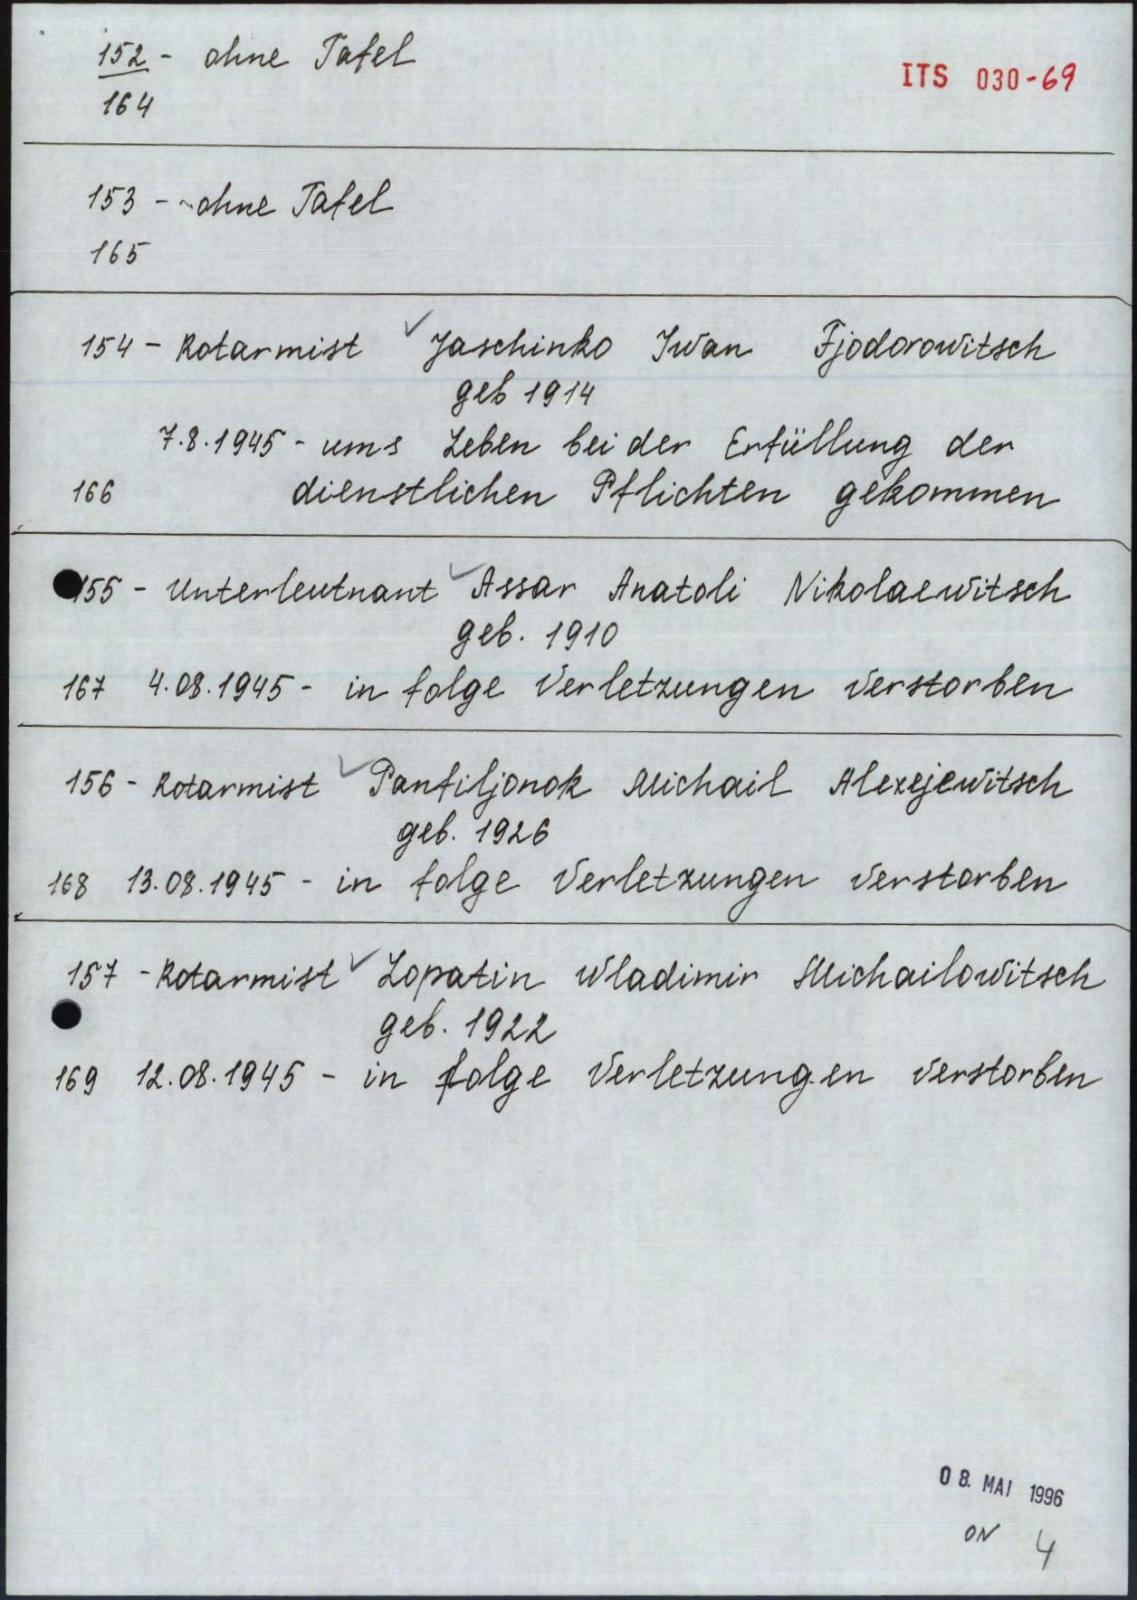 152 - ohne Tafel
ITS 030-69
164
153 - ohne Tafel
165
154 - Rotarmist Jaschinko Iwan Fjodorowitsch
geb 1914
7.8.1945 - ums Leben bei der Erfüllung der
166 dienstlichen Pflichten gekommen
155 - Unterleutnant Assar Anatoli Nikolaewitsch
geb. 1910
167 4.08.1945 - in folge Verletzungen verstorben
156 - Rotarmist Panfiljonok Michail Alexejewitsch
geb. 1926
168 13.08.1945 - in folge Verletzungen verstorben
157 - Rotarmist Lopatin Wladimir Michailowitsch
geb. 1922
169 12.08.1945 - in folge Verletzungen verstorben
08. MAI 1996
ON 4